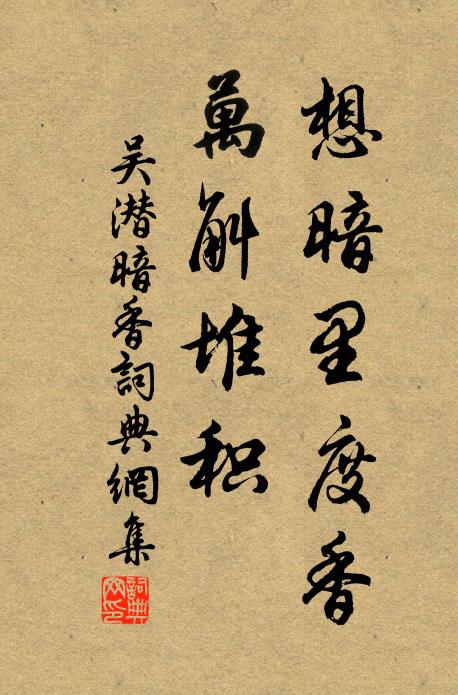 想暗里度香
萬斛堆积
吴潜暗香詞典網集
詞典网印